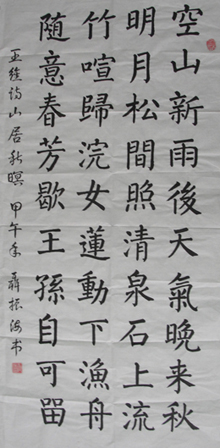 空山新雨後天氣晚来秋
明月松間照清泉石上流
竹喧歸浣女蓮動下漁舟
隨意春芳歇王孫自可留
王維詩山居秋暝 甲午年 聶振海书